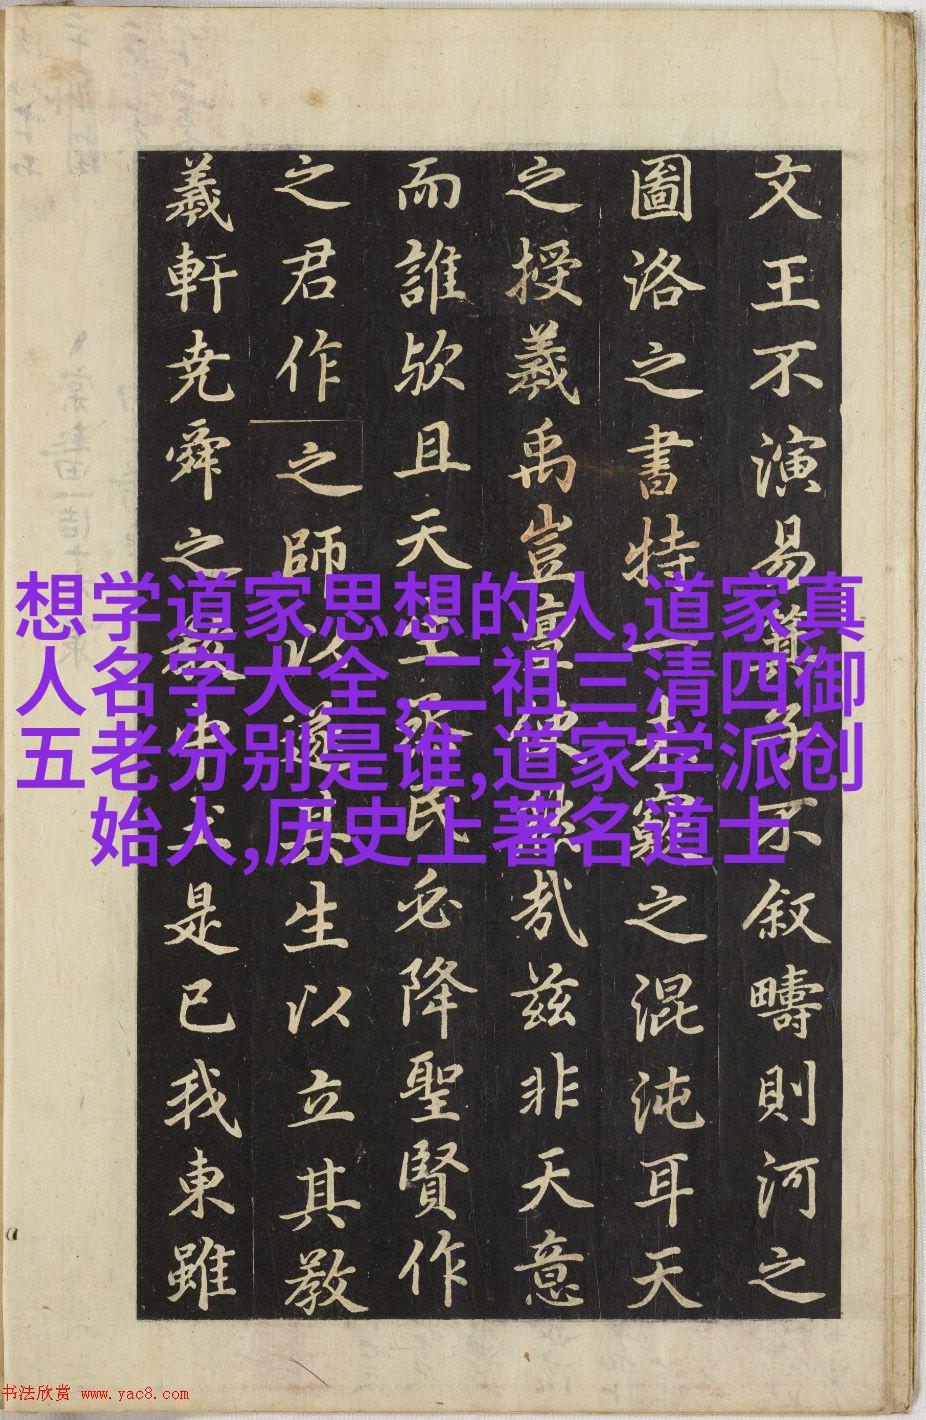 文王不演易箕子不叙疇則河之
圖洛之書特一竅之混沌耳天
之授羲禹豈亶然哉兹非天意
而誰欤且天生烝民必降聖賢作
之君作之師以道其生以立其教
羲軒尭舜之教是已我東雖
想学道家思想的人,道家真
人名字大全,二祖三清四御
五老分别是谁,道家学派创
始人,历史上著名道士
书法欣赏 www.yac8.com